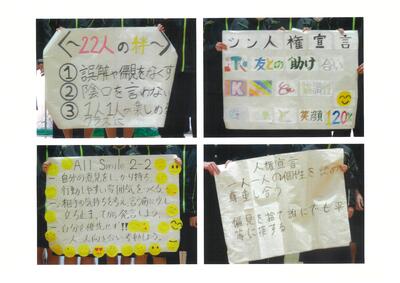 〈〜22人の絆〜〉
①誤解や偏見をなくす
②陰口を言わない
③1人1人の楽しめる
クラスに
シン人権宣言
友との助け合い
K
笑顔120%
All Smile 2-2
一.自分の意見をしっかり持ち
行動しやすい雰囲気をつくる。
一.相手の気持ちを考え、言う前に少し
立ち止まってから発言しよう。
人権宣言
一人一人の個性を
尊重し合う
偏見を捨て誰にでも平
等に接する